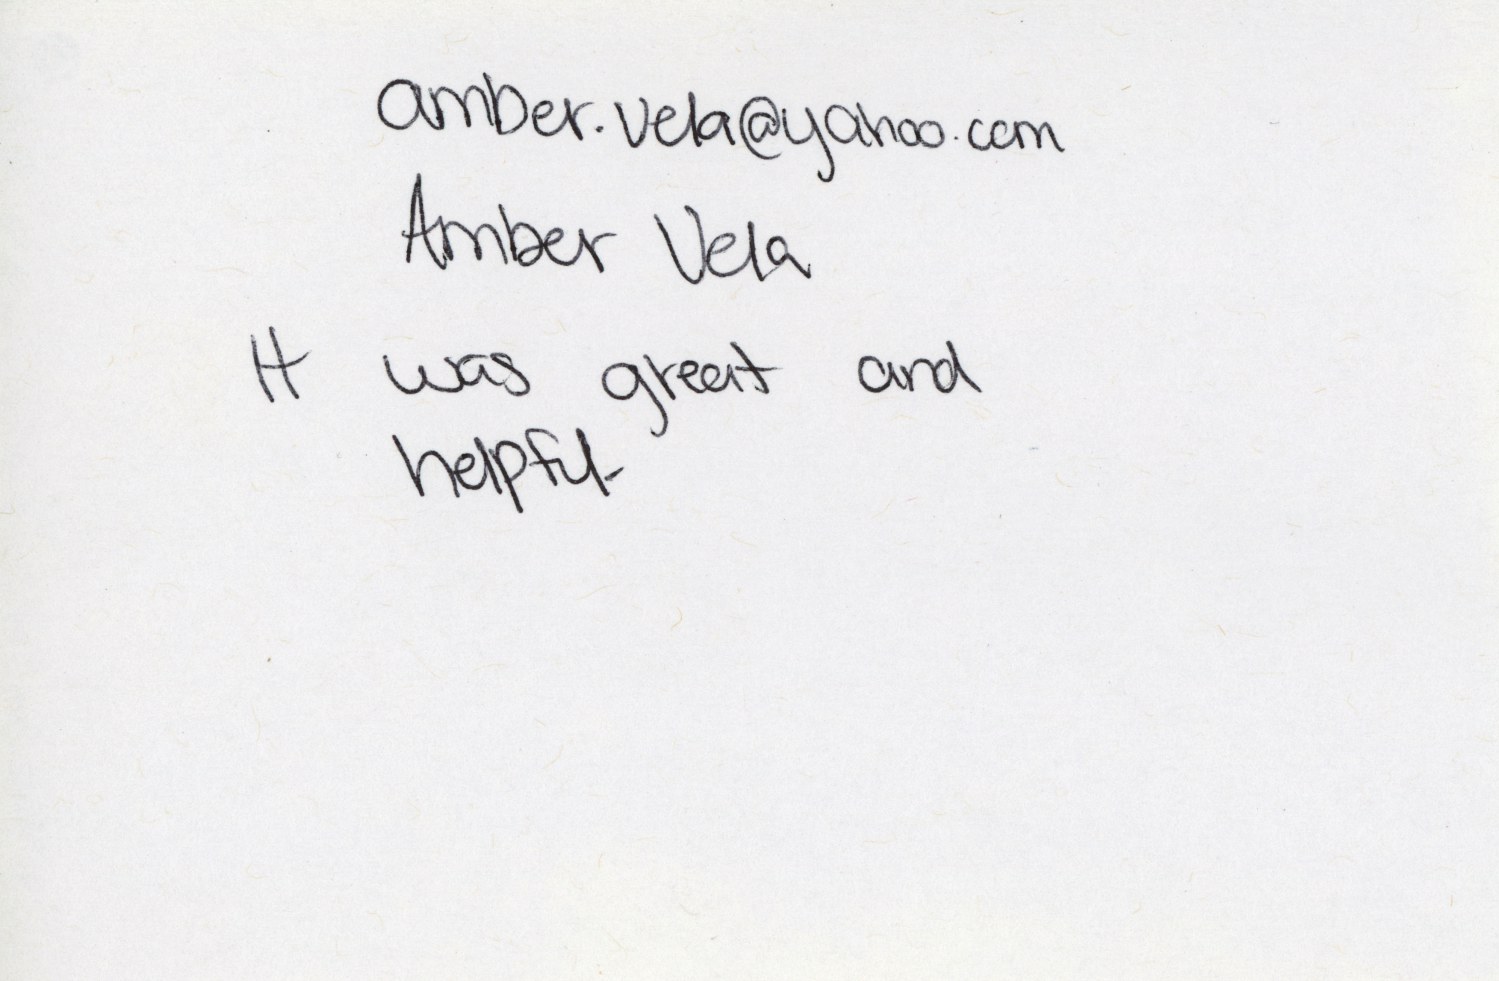 amber.vela@yahoo.com
Amber Vela
It was great and
helpful.